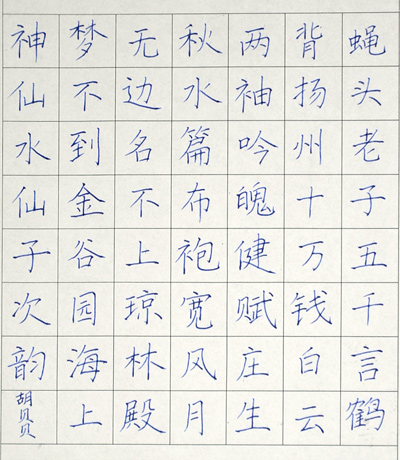 蝇头老子五千言鹤
背扬州十万钱白云
两袖吟魄健赋庄生
秋水篇布袍宽风月
无边名不上琼林殿
梦不到金谷园海上
神仙水仙子次韵胡贝贝